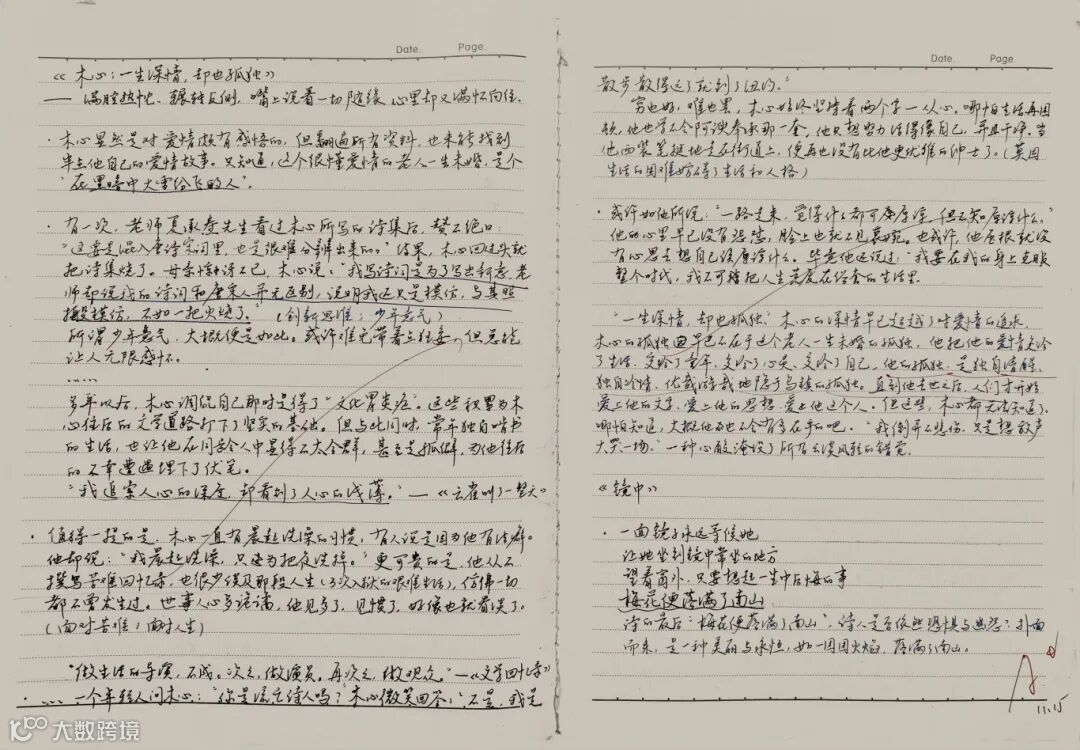 Date.    Page.
《木心：一生深情，却也孤独》
—— 满腔热忱、辗转反侧，嘴上说着一切随缘，心里却又满怀向往。
· 木心显然是对爱情颇有感悟的，但翻遍所有资料，也未能找到
半点他自己的爱情故事。只知道，这个很懂爱情的老人一生未婚，是个
“在黑暗中大雪纷飞的人”。
· 有一次，老师夏承焘先生看过木心所写的诗集后，赞不绝口：
“这要是混入唐诗宋词里，也是很难分辨出来的。”结果，木心回过头就
把诗集烧了。母亲惊讶不已，木心说：“我写诗词是为了写出新意，老
师却说我的诗词和唐宋人并无区别，说明我还只是模仿，与其照
搬模仿，不如一把火烧了。”（创新思维；少年意气）
所谓少年意气，大概便是如此。或许难免带着点狂妄，但总能
让人无限感怀。
……
多年以后，木心调侃自己那时是得了“文化胃炎症”。这些积累为木
心往后的文学道路打下了坚实的基础。但与此同时，常年独自啃书
的生活，也让他在同龄人中显得不太合群，甚至是孤僻，为他往后
的不幸遭遇埋下了伏笔。
“我追索人心的深度，却看到了人心的浅薄。”——《云雀叫了一整天》
· 值得一提的是，木心一直有晨起洗澡的习惯，有人说是因为他有洁癖。
他却说：“我晨起洗澡，只是为把夜洗掉。”更可贵的是，他从不
撰写苦难回忆录，也很少谈及那段人生（3次入狱的艰难生活），仿佛一切
都不曾发生过。世事人心多诡谲，他见多了，见惯了，好像也就看淡了。
（面对苦难；面对人生）
“做生活的导演，不成。次之，做演员。再次之，做观众。”——《文学回忆录》
…… 一个年轻人问木心：“你是流亡诗人吗？”木心微笑回答：“不是，我是
Date.    Page.
散步散得远了就到了纽约。”
穷也好，难也罢，木心始终坚持着两个字——从心。哪怕生活再困
顿，他也学不会阿谀奉承那一套。他只想努力活得像自己，并且干净。当
他西装笔挺地走在街道上，便再也没有比他更优雅的绅士了。（英国
生活的困难妨碍了生活和人格）
· 或许如他所说：“一路走来，觉得什么都可原谅，但不知原谅什么。”
他的心里早已没有怨怼，脸上也就不见哀婉。也或许，他压根就没
有心思去想自己该原谅什么。毕竟他还说过：“我要在我的身上克服
整个时代，我不可能把人生荒度在俗套的生活里。
“一生深情，却也孤独。”木心的深情早已超越了对爱情的追求，
木心的孤独也早已不在乎这个老人一生未婚的孤独，他把他的爱情交给
了生活，交给了童年，交给了心灵，交给了自己，他的孤独，是独自清醒，
独自冷情，优哉游哉地隐于乌镇的孤独。直到他去世之后，人们才开始
爱上他的文字，爱上他的思想，爱上他这个人。但这些，木心都无法知道了，
哪怕知道，大概他也不会有多在乎的吧。“我倒并不悲伤，只是想放声
大哭一场。”一种心酸淹没了所有云淡风轻的错觉。
《镜中》
· 一面镜子永远等候她
让她坐到镜中常坐的地方
望着窗外，只要想起一生中后悔的事
梅花便落满了南山
诗的最后“梅花便落满了南山”，诗人是否依然恐惧与幽怨？扑面
而来，是一种美丽与永恒，如一团团火焰，落满了南山。
11.15
大数跨境